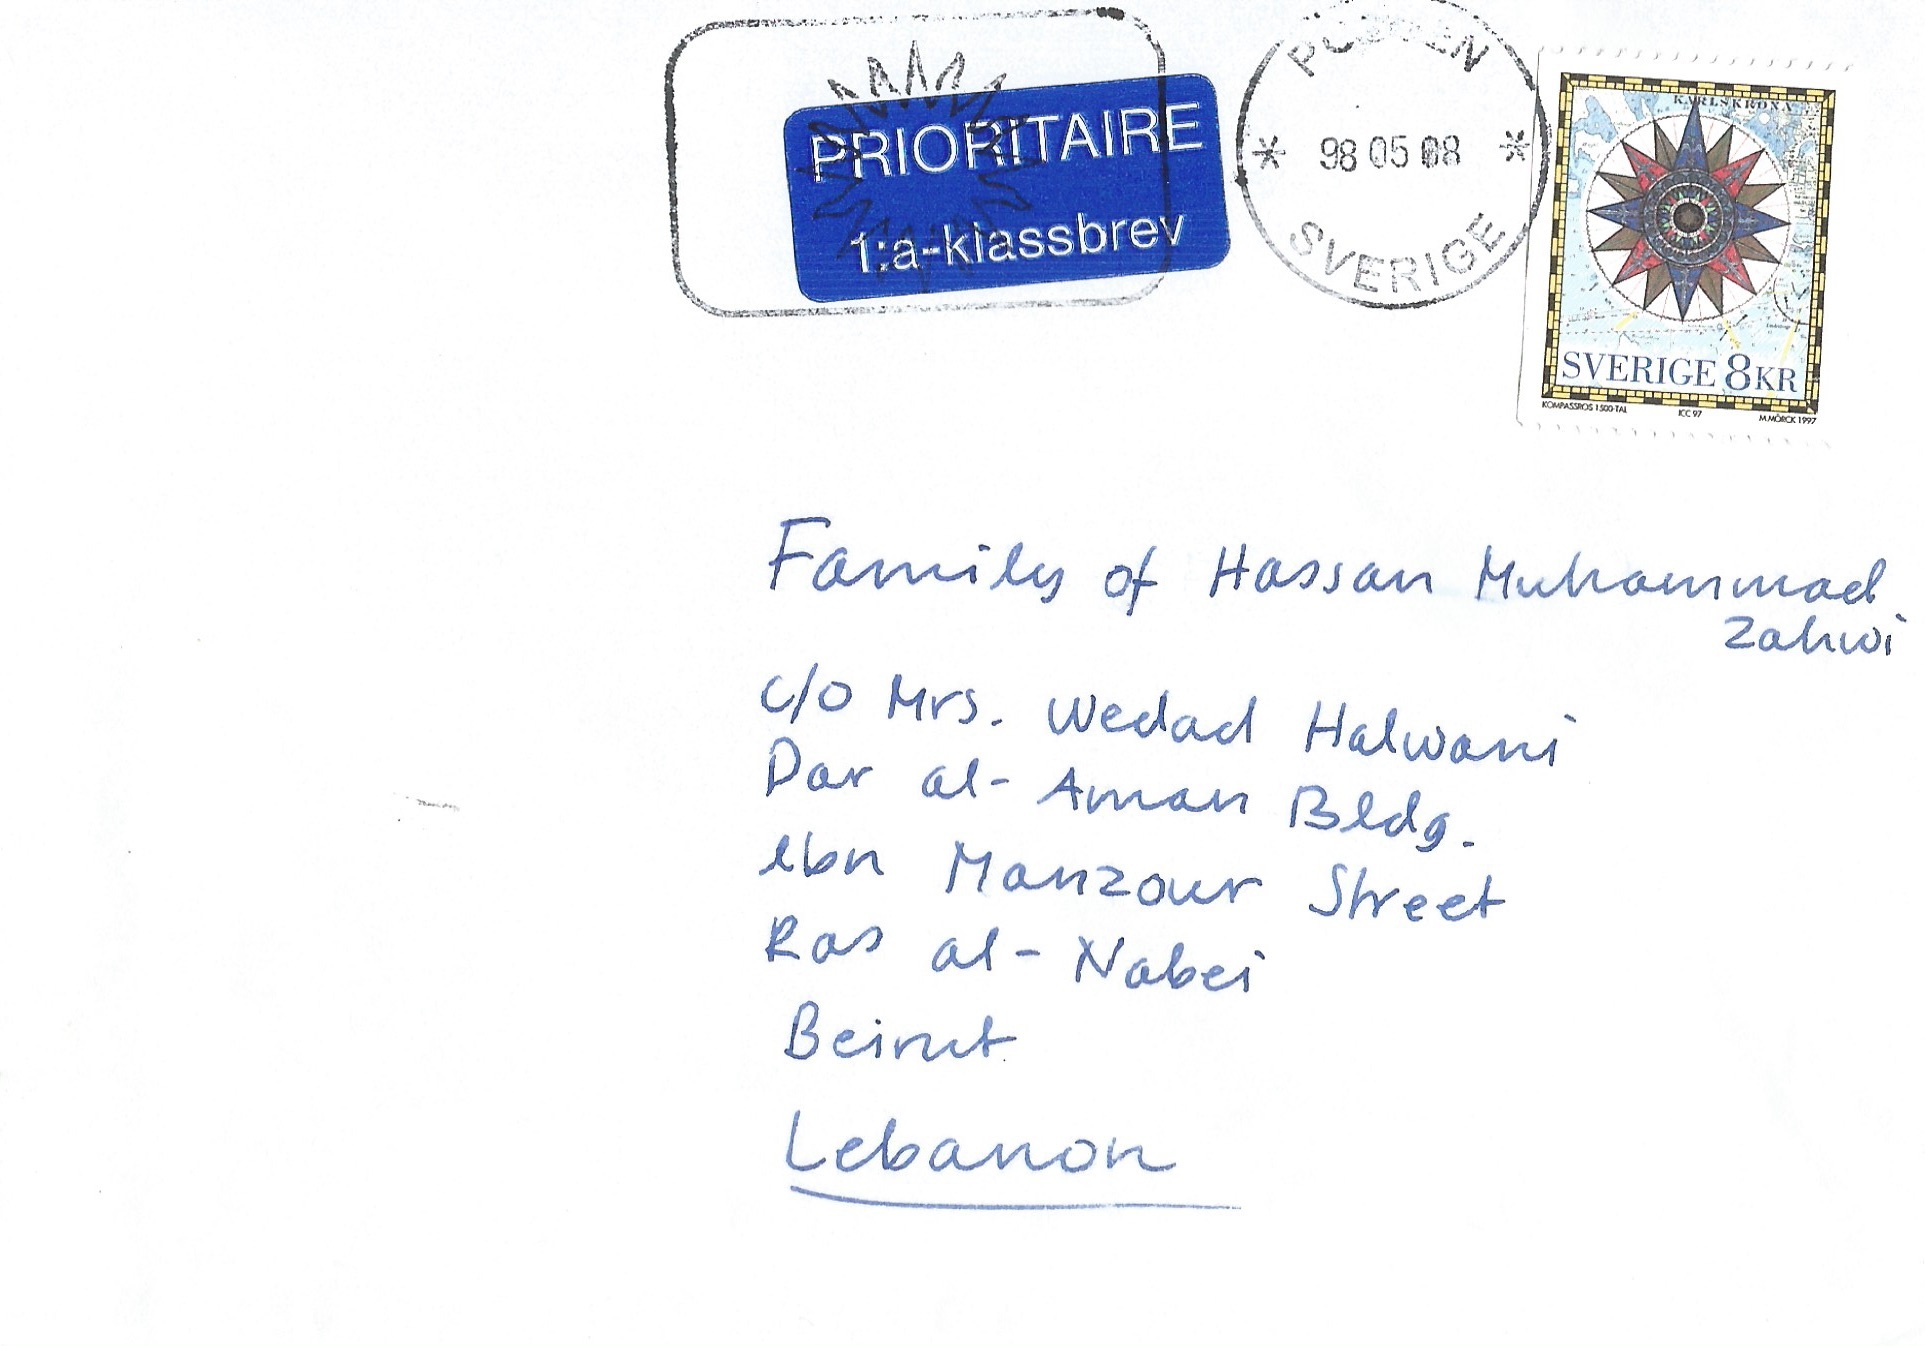 PRIORITAIRE
1:a-klassbrev
POSTEN
* 98 05 08 *
SVERIGE
KARLSKRONA
SVERIGE 8KR
KOMPASSROS 1500-TAL ICC 97 M.MÖRCK 1997
Family of Hassan Muhammad
Zahwi
c/o Mrs. Wedad Halwani
Dar al-Aman Bldg.
Ibn Manzour Street
Ras al-Nabei
Beirut
Lebanon